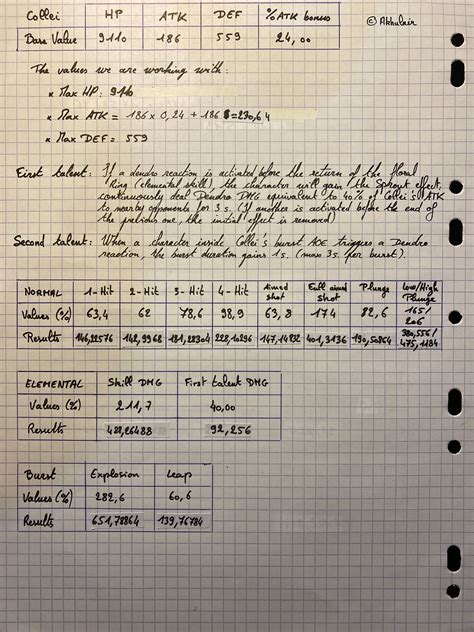 Collei HP ATK DEF %ATK bonus © Akhulair
Base Value 9110 186 559 24,00
The values we are working with:
* Max HP: 9110
* Max ATK = 186 x 0,24 + 186 = 230,64
* Max DEF = 559
First talent: If a dendro reaction is activated before the return of the floral
Ring (elemental skill), the character will gain the Sprout effect,
continuously deal Dendro DMG equivalent to 40% of Collei's ATK
to nearby opponents for 3 s. (If another is activated before the end of
the previous one, the initial effect is removed)
Second talent: When a character inside Collei's burst AOE triggers a Dendro
reaction, the burst duration gains 1s. (max 3s. per burst).
NORMAL 1-Hit 2-Hit 3-Hit 4-Hit Aimed Shot Full aimed Shot Plunge Low/High Plunge
Values (%) 63,4 62 78,6 98,9 63,8 174 82,6 165/ 206
Results 146,22576 142,9968 181,28304 228,10296 147,14832 401,3136 190,50864 380,556/ 475,1184
ELEMENTAL Skill DMG First talent DMG
Values (%) 211,7 40,00
Results 488,26488 92,256
Burst Explosion Leap
Values (%) 282,6 60,6
Results 651,78864 139,76784